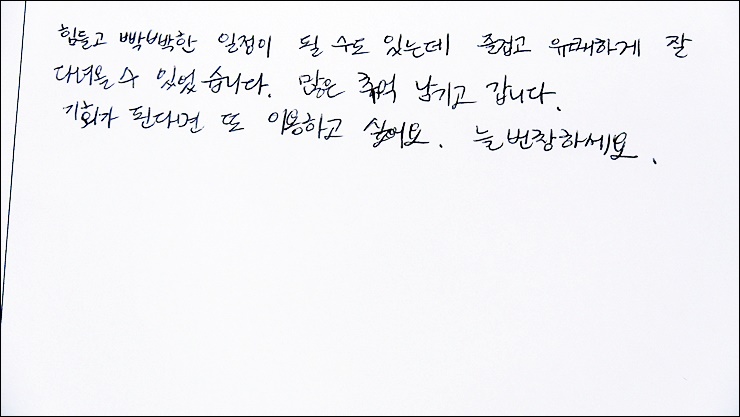 힘들고 빡빡한 일정이 될 수도 있는데 즐겁고 유쾌하게 잘
다녀올 수 있었습니다. 많은 추억 남기고 갑니다.
기회가 된다면 또 이용하고 싶어요. 늘 번창하세요.